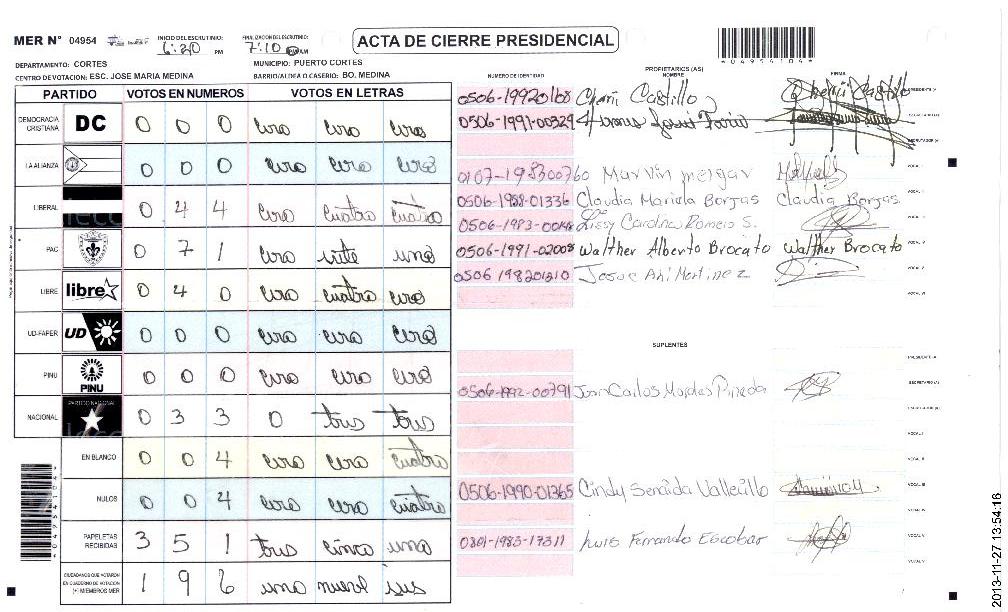 MER N° 04954
INICIO DEL ESCRUTINIO: 6:20 PM
FINALIZACION DEL ESCRUTINIO: 7:10
ACTA DE CIERRE PRESIDENCIAL
*04954104*
DEPARTAMENTO: CORTES
MUNICIPIO: PUERTO CORTES
CENTRO DE VOTACION: ESC. JOSE MARIA MEDINA
BARRIO/ALDEA O CASERIO: BO. MEDINA
PARTIDO VOTOS EN NUMEROS VOTOS EN LETRAS
DEMOCRACIA CRISTIANA DC 0 0 0 cero cero cero
LA ALIANZA 0 0 0 cero cero cero
LIBERAL 0 4 4 cero cuatro cuatro
PAC 0 7 1 cero siete uno
LIBRE libre 0 4 0 cero cuatro cero
UD-FAPER UD 0 0 0 cero cero cero
PINU PINU 0 0 0 cero cero cero
NACIONAL PARTIDO NACIONAL 0 3 3 0 tres tres
EN BLANCO 0 0 4 cero cero cuatro
NULOS 0 0 4 cero cero cuatro
PAPELETAS RECIBIDAS 3 5 1 tres cinco uno
CIUDADANOS QUE VOTARON EN CUADERNO DE VOTACION (+) MIEMBROS MER 1 9 6 uno nueve seis
PROPIETARIOS (AS)
NUMERO DE IDENTIDAD NOMBRE FIRMA
0506-199201108 Castillo
0506-1991-00329
Marvin
0506-1988-01336 Claudia Mariela Borjas Claudia Borjas
0506-1983- Carolina Romero S.
0506-1991-02008 Walther Alberto Brocato Walther Brocato
0506 198201310 Josue Martinez
SUPLENTES
0506-1992-00791 Juan Carlos Pineda
0506-1990-01365 Cindy Vallecillo
0801-1983-17311 Luis Fernando Escobar
2013-11-27 13:54:16